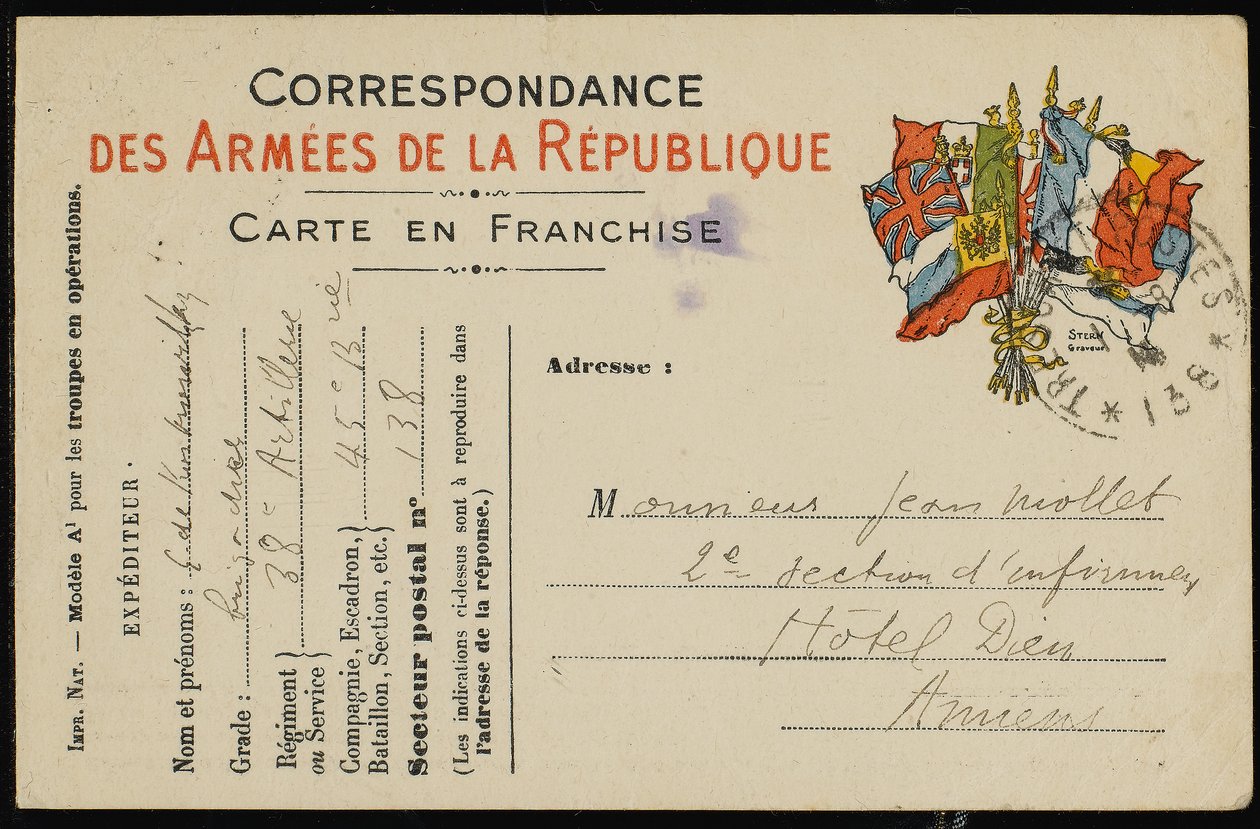 CORRESPONDANCE
DES ARMÉES DE LA RÉPUBLIQUE
CARTE EN FRANCHISE
IMPR. NAT. — Modèle A¹ pour les troupes en opérations.
EXPÉDITEUR.
Nom et prénoms : G de Kostrowitzky
Grade : brigadier
Régiment ou Service } 38e Artillerie
Compagnie, Escadron, Bataillon, Section, etc. } 45e Brie
Secteur postal n° 138
(Les indications ci-dessus sont à reproduire dans
l'adresse de la réponse.)
STERN
Graveur
TRÉSOR ET POSTES * 138 *
Adresse :
Monsieur Jean Mollet
2e section d'infirmiers
Hôtel Dieu
Amiens